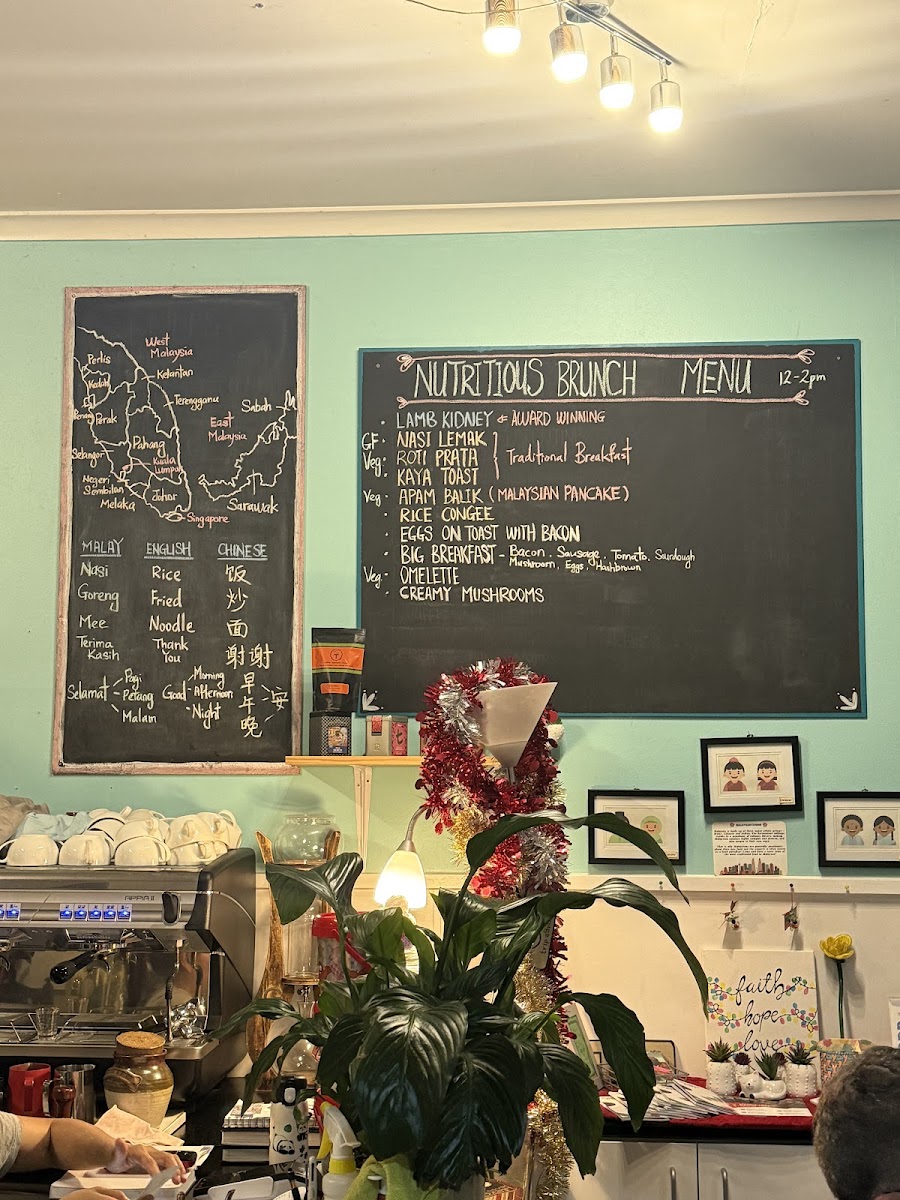 West
Malaysia
Perlis
Kedah
Kelantan
Penang
Perak
Terengganu
Sabah
East
Malaysia
Pahang
Selangor
Kuala
Lumpur
Negeri
Sembilan
Johor
Melaka
Sarawak
Singapore
MALAY ENGLISH CHINESE
Nasi Rice 饭
Goreng Fried 炒
Mee Noodle 面
Terima Kasih Thank You 谢谢
Selamat - Pagi Petang Malam
Good - Morning Afternoon Night
早 午 晚 安
NUTRITIOUS BRUNCH MENU 12-2pm
· LAMB KIDNEY AWARD WINNING
GF · NASI LEMAK
Veg · ROTI PRATA Traditional Breakfast
· KAYA TOAST
Veg · APAM BALIK (MALAYSIAN PANCAKE)
· RICE CONGEE
· EGGS ON TOAST WITH BACON
· BIG BREAKFAST - Bacon, Sausage, Tomato, Sourdough
Mushroom, Eggs, Hashbrown
Veg · OMELETTE
· CREAMY MUSHROOMS
APPIA II
faith
hope
love